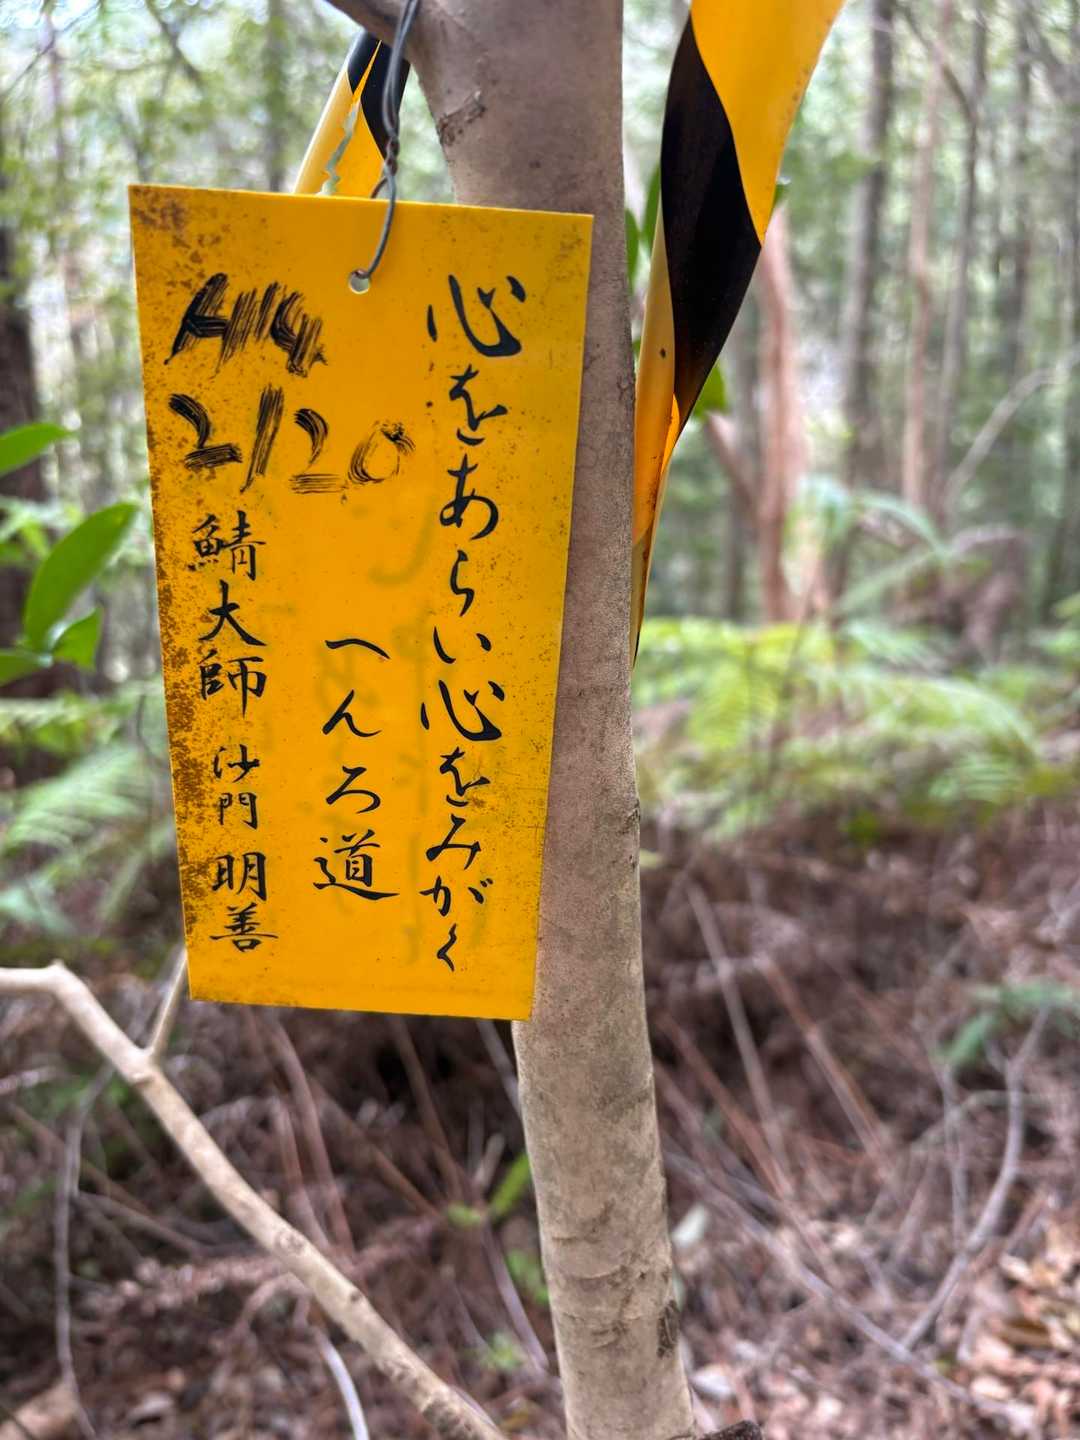 心をあらい心をみがく
へんろ道
H14
2/20
鯖大師 沙門 明善